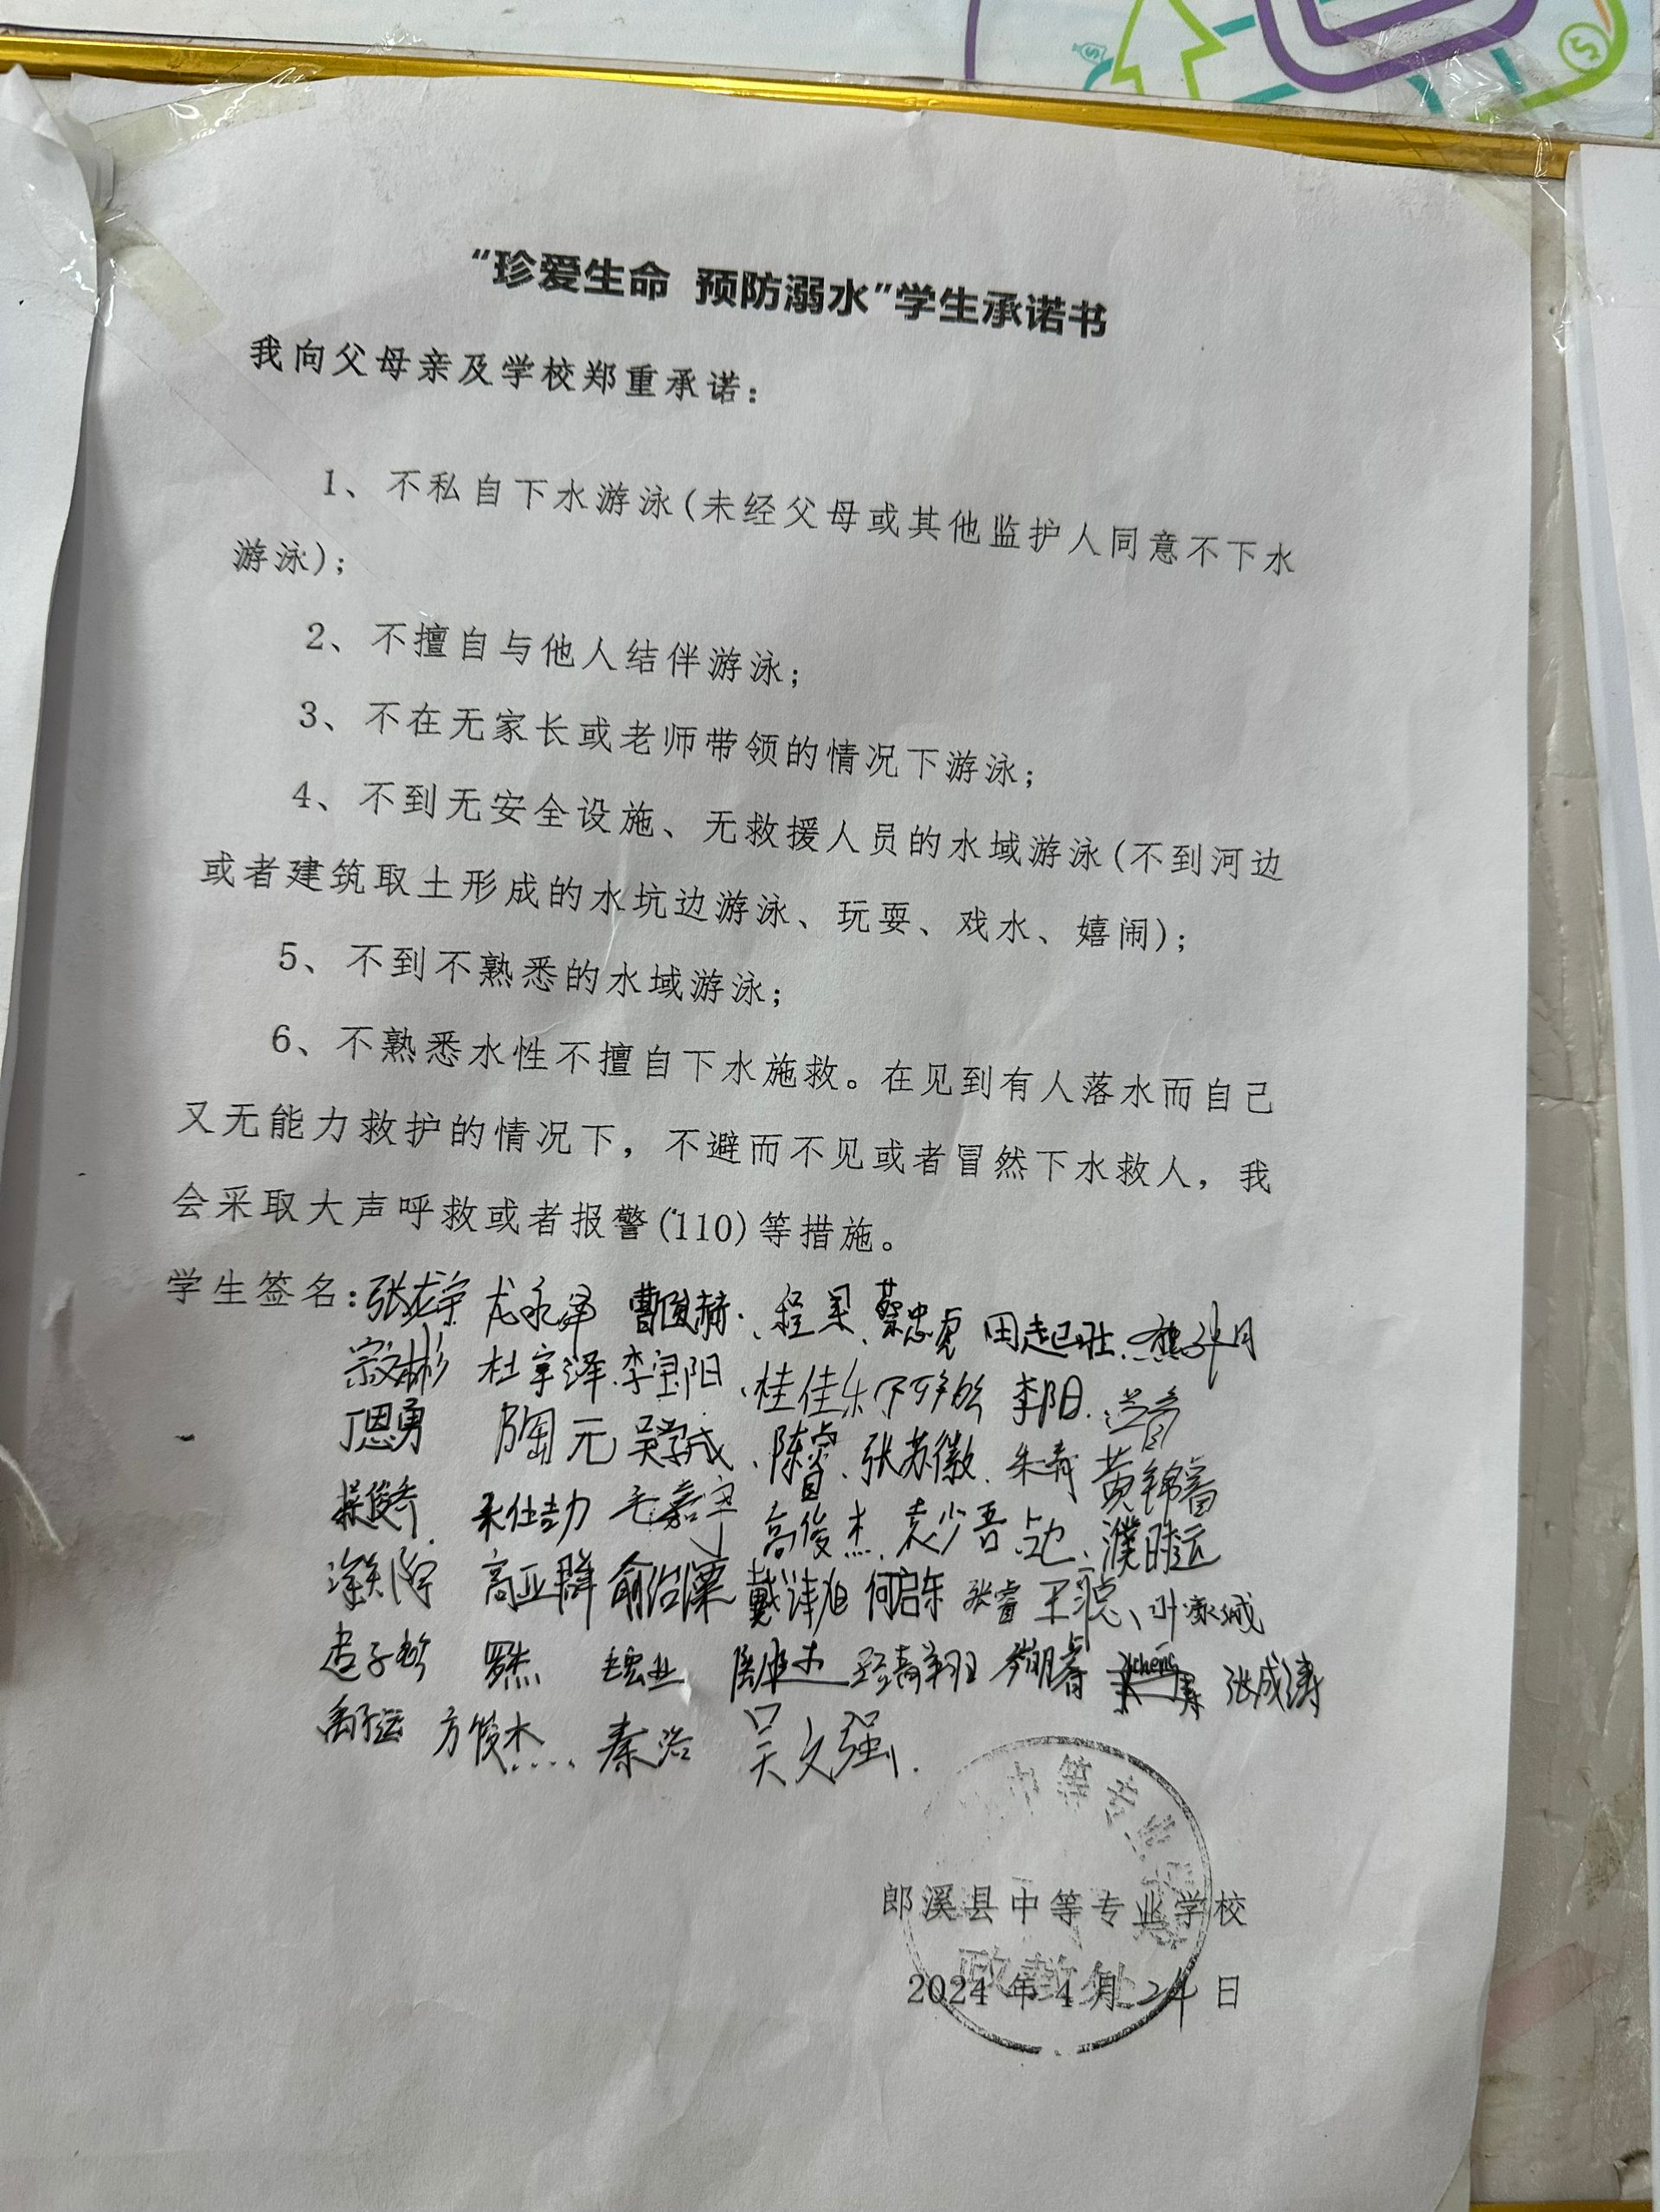 “珍爱生命 预防溺水”学生承诺书
我向父母亲及学校郑重承诺：
1、不私自下水游泳(未经父母或其他监护人同意不下水
游泳)；
2、不擅自与他人结伴游泳；
3、不在无家长或老师带领的情况下游泳；
4、不到无安全设施、无救援人员的水域游泳(不到河边
或者建筑取土形成的水坑边游泳、玩耍、戏水、嬉闹)；
5、不到不熟悉的水域游泳；
6、不熟悉水性不擅自下水施救。在见到有人落水而自己
又无能力救护的情况下，不避而不见或者冒然下水救人，我
会采取大声呼救或者报警(110)等措施。
学生签名：张龙宇 龙永泽 曹俊赫 程果 蔡忠虎 田起壮
杜宇泽 李宝阳 桂佳乐 李阳
丁恩勇 陶元 吴学成 陈睿 张苏徽 朱青 黄锦睿
毛嘉宇 高俊杰 袁少吾 濮时运
高亚群 俞治潭 戴泽旭 何启东 张睿 王德 叶家诚
孟子乾 罗杰 张成涛
禹子运 方俊杰 秦浩 吴文强
中等专业
郎溪县中等专业学校
政教处
2024 年 4 月 24 日